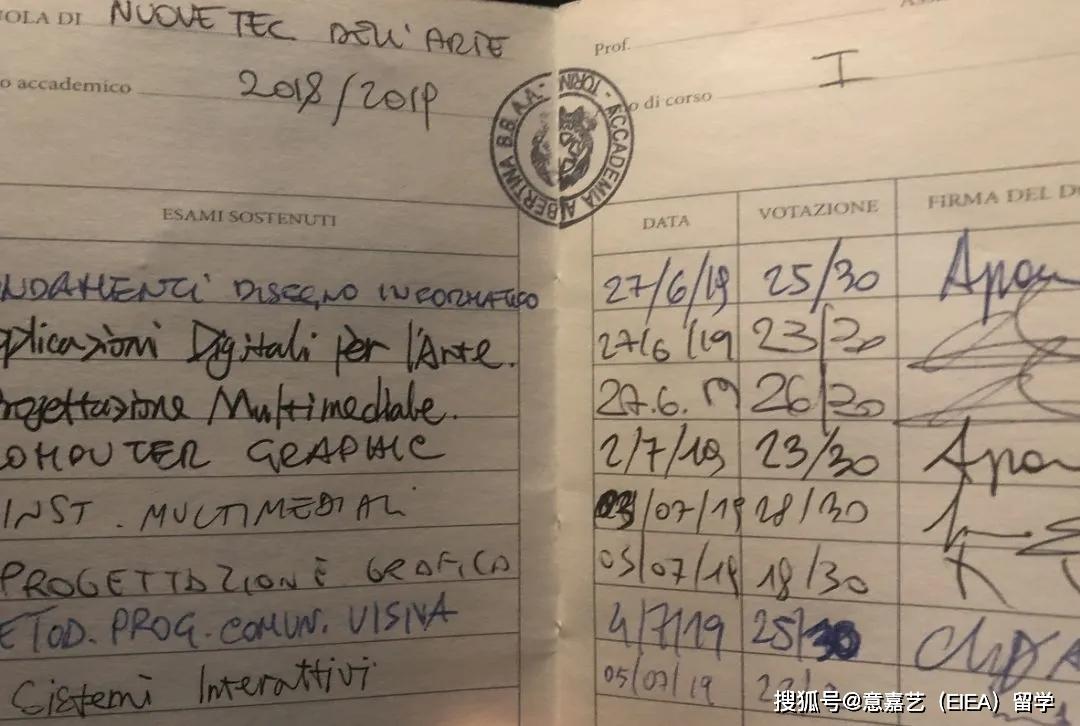 UOLA DI NUOVE TEC DELL'ARTE
Prof.
o accademico 2018/2019
o di corso I
ACCADEMIA ALBERTINA B.B.A.A. - TORINO -
ESAMI SOSTENUTI DATA VOTAZIONE FIRMA DEL DO
NDAMENTI DISEGNO INFORMATICO 27/6/19 25/30
plicazioni Digitali per l'Arte. 27/6/19 23/30
rogettazione Multimediale. 27.6.19 26/30
OMPUTER GRAPHIC 2/7/19 23/30
INST. MULTIMEDIALI 03/07/19 28/30
PROGETTAZIONE GRAFICA 03/07/19 18/30
ETOD. PROG. COMUN. VISIVA 4/7/19 25/30
Sistemi Interattivi 05/07/19
搜狐号@意嘉艺（EIEA）留学